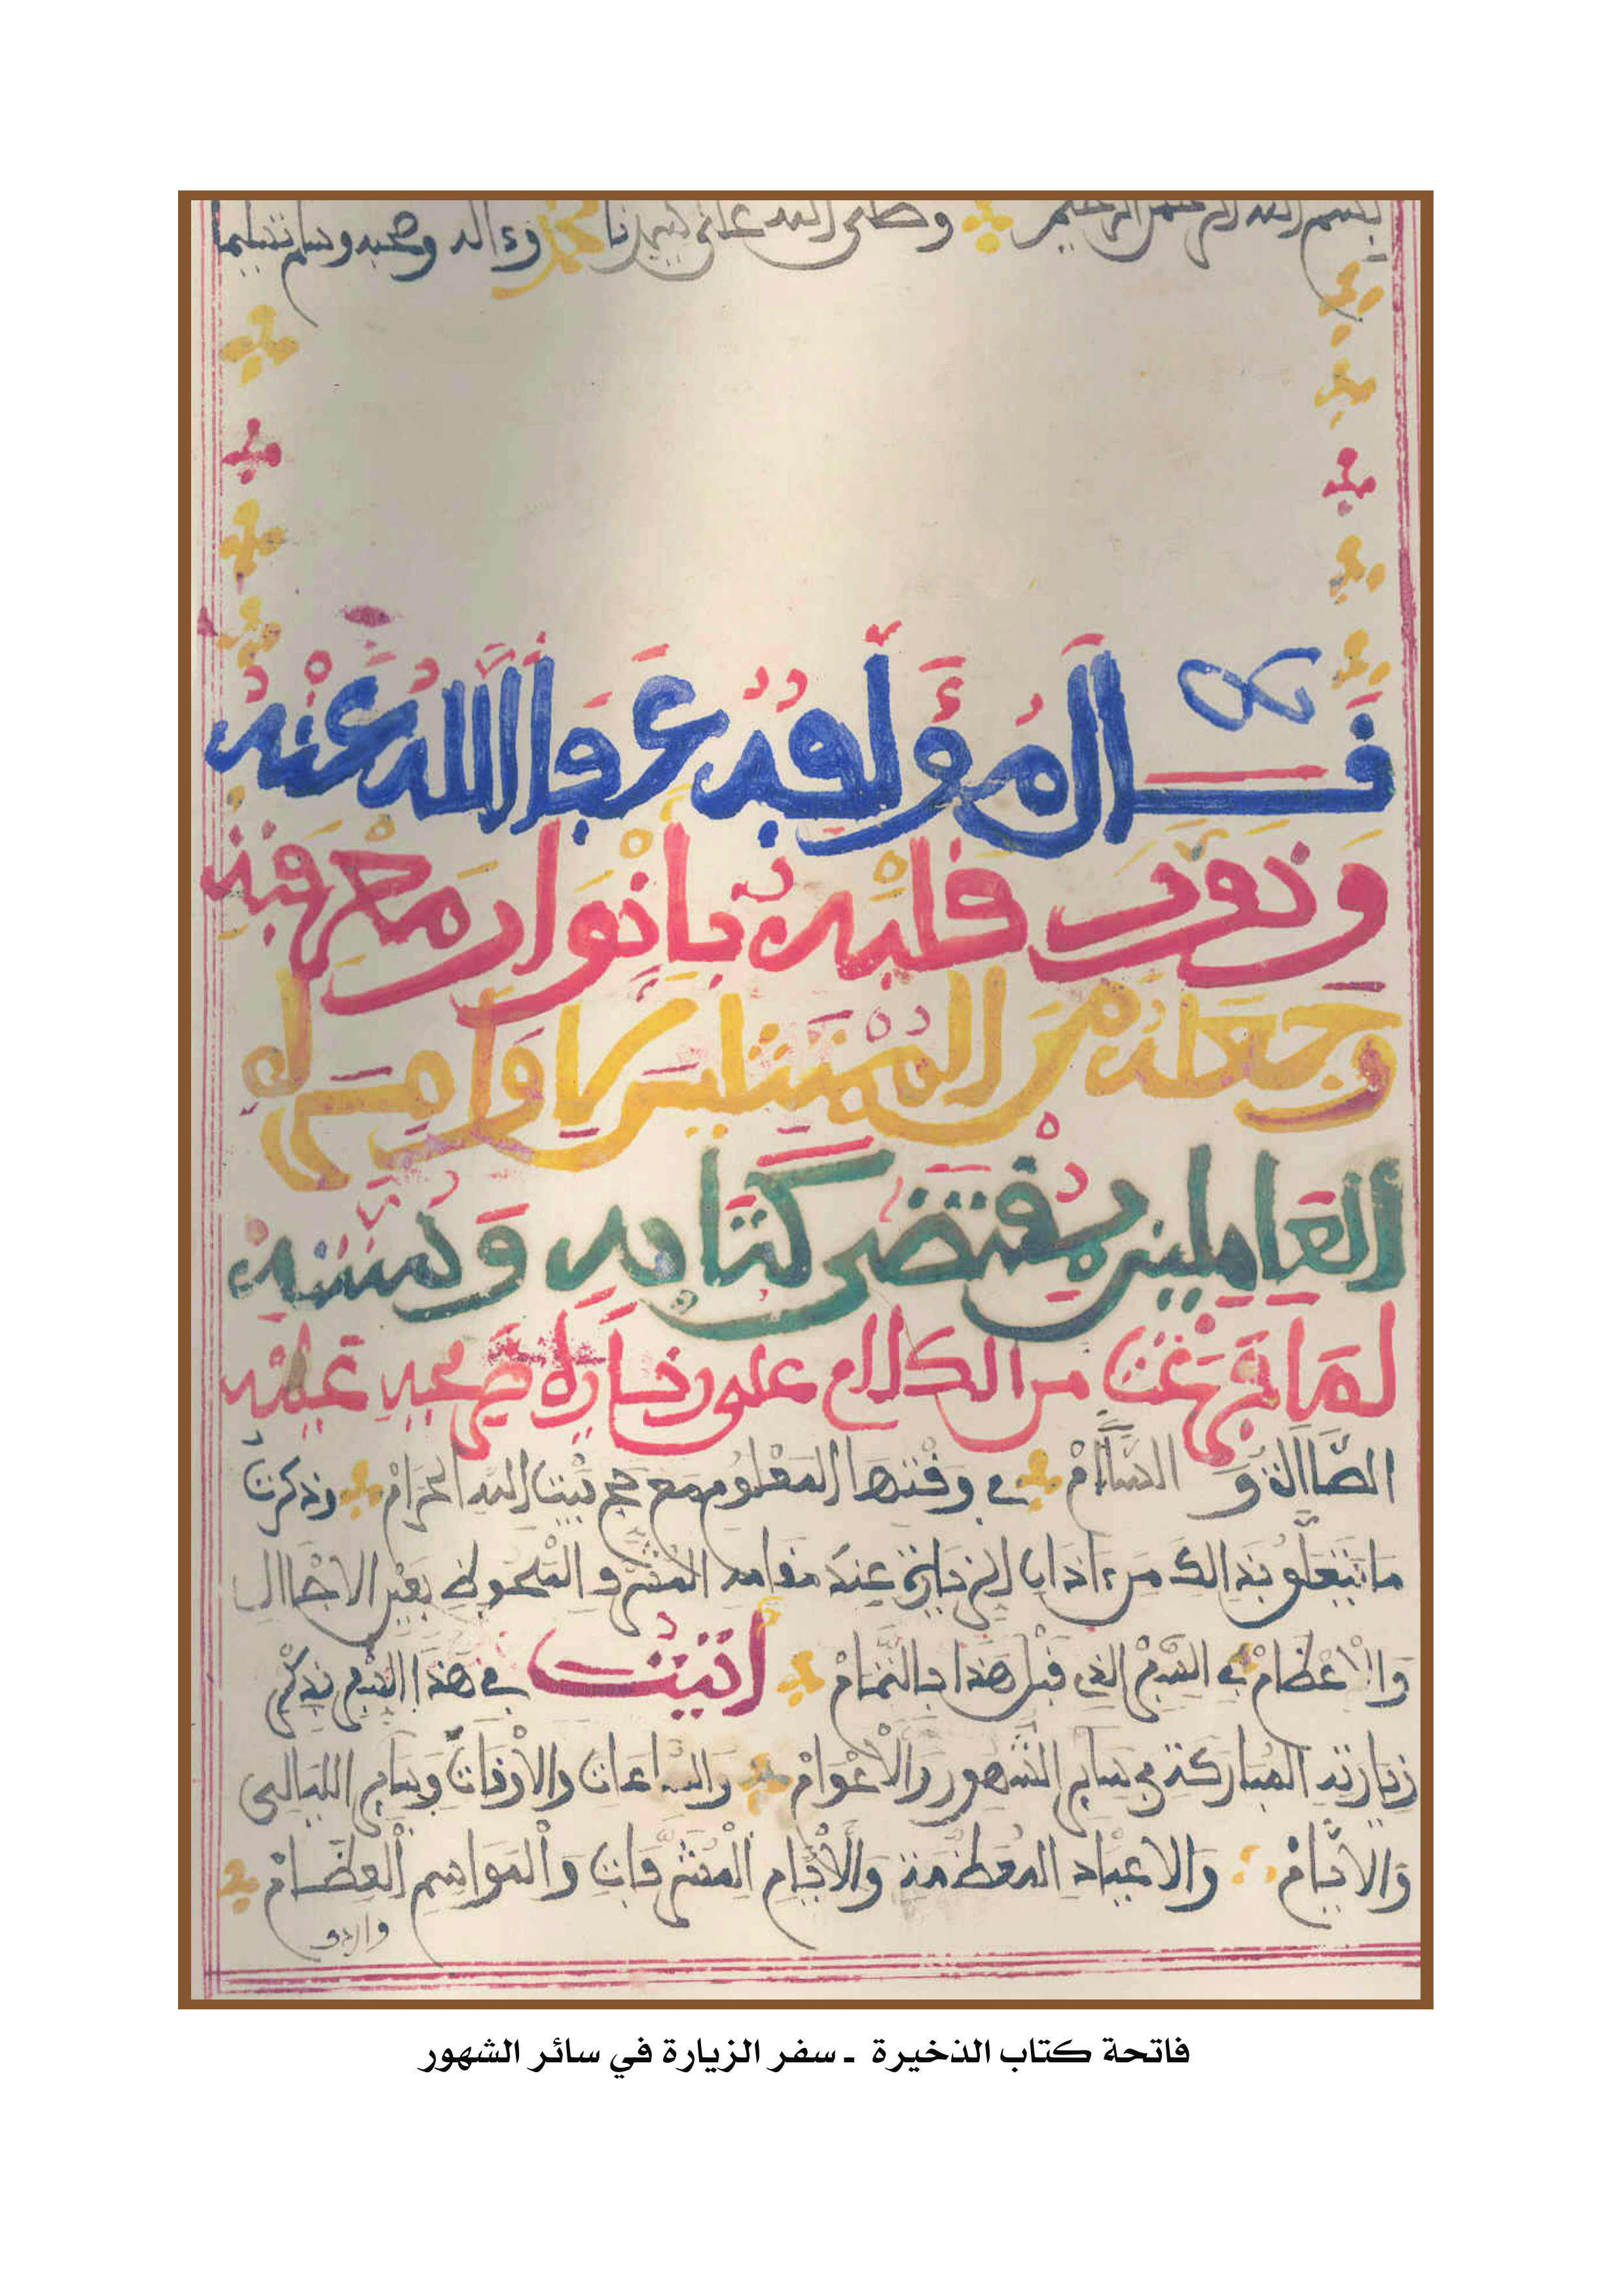 بسم الله الرحمن الرحيم وصلى الله على سيدنا محمد وءاله وصحبه وسلم تسليما
قال المؤلف عفا الله عنه
ونور قلبه بأنوار معرفته
وجعله من الممتثلين لأوامره
العاملين بمقتضى كتابه وسنته
لما فرغت من الكلام على زيارة صحبه عليه
الصلاة والسلام في وقتها المعلوم مع حج بيت الله الحرام وذكرت
ما يتعلق بذالك من ءاداب الزيارة عند مقامه المشرف الملحوظ بعين الاجلال
والاعظام في السفر الذي قبل هذا بالتمام أتيت في هذا السفر بذكر
زيارته المباركة في سائر الشهور والأعوام والساعات والأوقات وسائر الليالي
والأيام والاعياد المعظمة والأيام المشرفات والمواسم العظام
فاتحة كتاب الذخيرة - سفر الزيارة في سائر الشهور